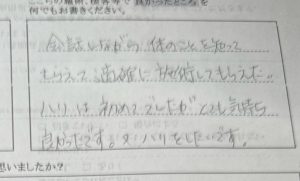 この施術、接客等で良かったところを
何でもお書きください。
会話しながら、体のことを知って
もらえて適確に施術してもらえた。
ハリは初めてでしたがとても気持ち
良かったです。又、ハリをしたいです。
思いましたか?